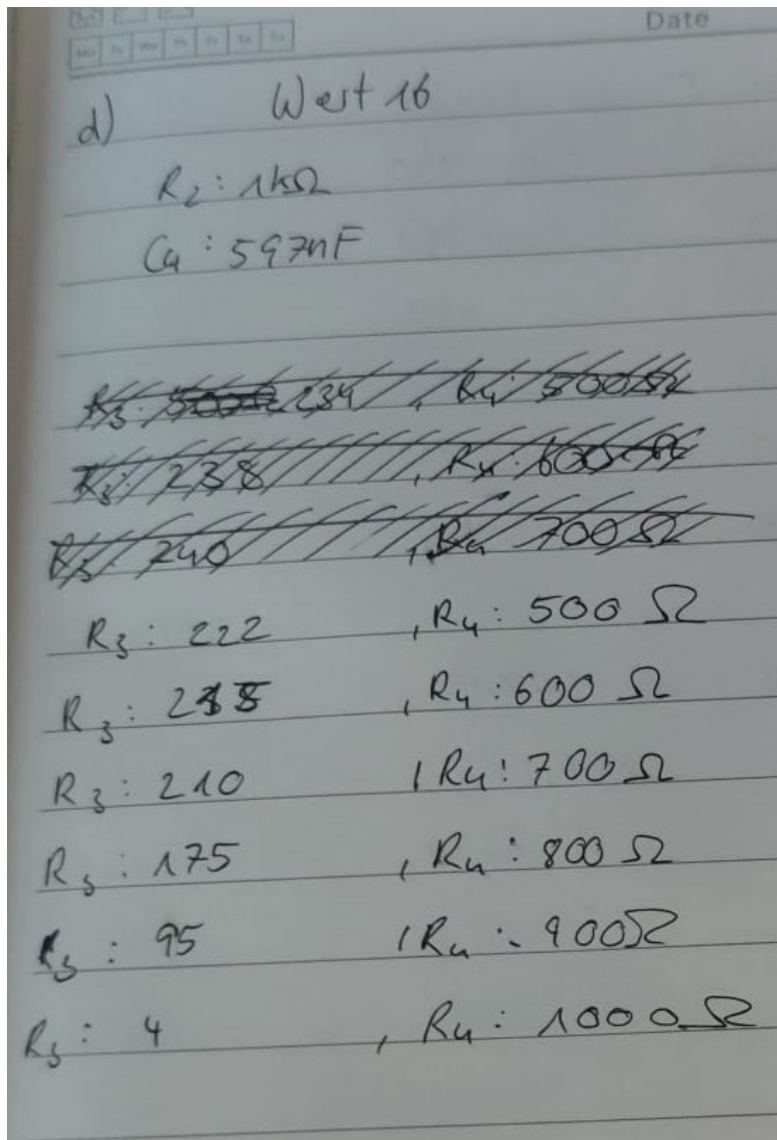 Date
Mo Tu We Th Fr Sa Su
d) Wert 16
R2: 1kΩ
C4: 597nF
R3: 234, R4: 500Ω
R3: 238, R4: 600Ω
R3: 240, R4 700Ω
R3: 222, R4: 500 Ω
R3: , R4: 600 Ω
R3: 210, R4: 700 Ω
R3: 175, R4: 800 Ω
R3: 95, R4: 900Ω
R3: 4, R4: 1000Ω